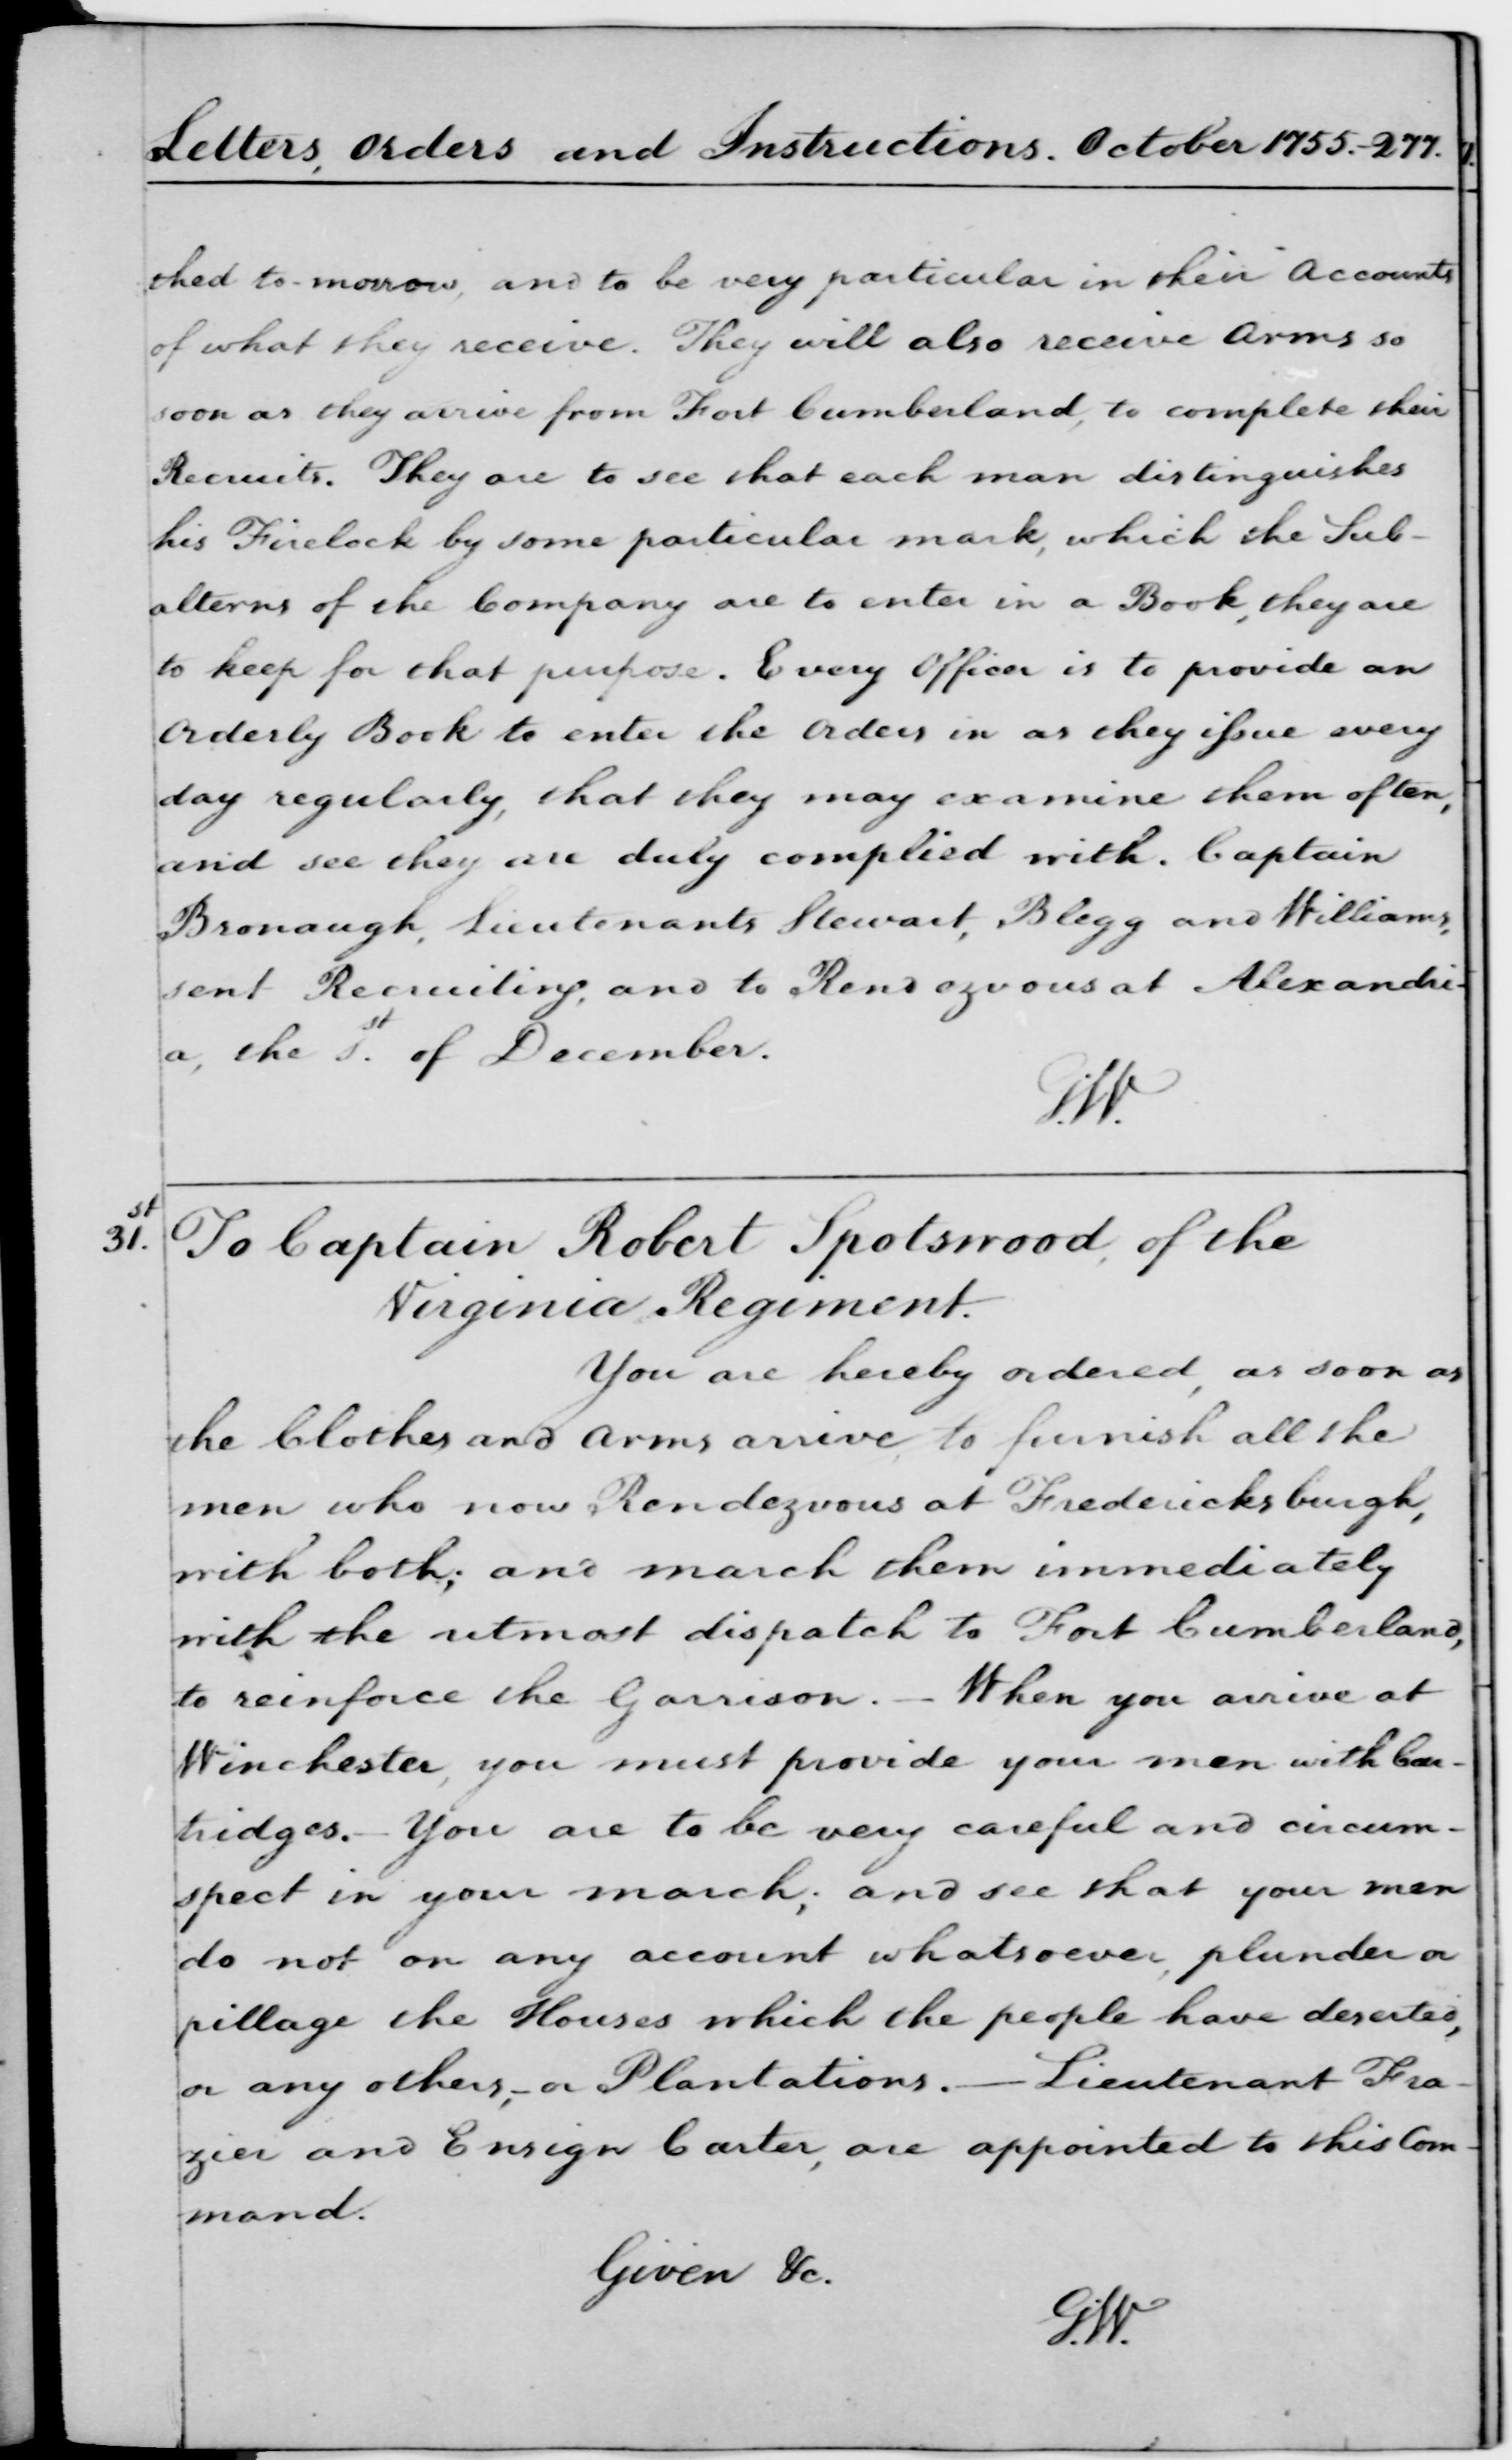 Letters, Orders and Instructions. October 1755.-277.
ched to-morrow, and to be very particular in their Accounts
of what they receive. They will also receive Arms so
soon as they arrive from Fort Cumberland, to complete their
Recruits. They are to see that each man distinguishes
his Firelock by some particular mark, which the Sub-
alterns of the Company are to enter in a Book, they are
to keep for that purpose. Every Officer is to provide an
Orderly Book to enter the Orders in as they issue every
day regularly, that they may examine them often,
and see they are duly complied with. Captain
Bronaugh, Lieutenants Stewart, Blegg and Williams,
sent Recruiting, and to Rendezvous at Alexandri-
a, the 1st. of December.
G.W.
31st. To Captain Robert Spotswood, of the
Virginia Regiment.
You are hereby ordered, as soon as
the Clothes and Arms arrive, to furnish all the
men who now Rendezvous at Fredericksburgh,
with both; and march them immediately
with the utmost dispatch to Fort Cumberland,
to reinforce the Garrison. — When you arrive at
Winchester, you must provide your men with Car-
tridges. — You are to be very careful and circum-
spect in your march; and see that your men
do not on any account whatsoever, plunder or
pillage the Houses which the people have deserted,
or any others,- or Plantations. — Lieutenant Fra-
zier and Ensign Carter, are appointed to this Com-
mand.
Given &c.
G.W.